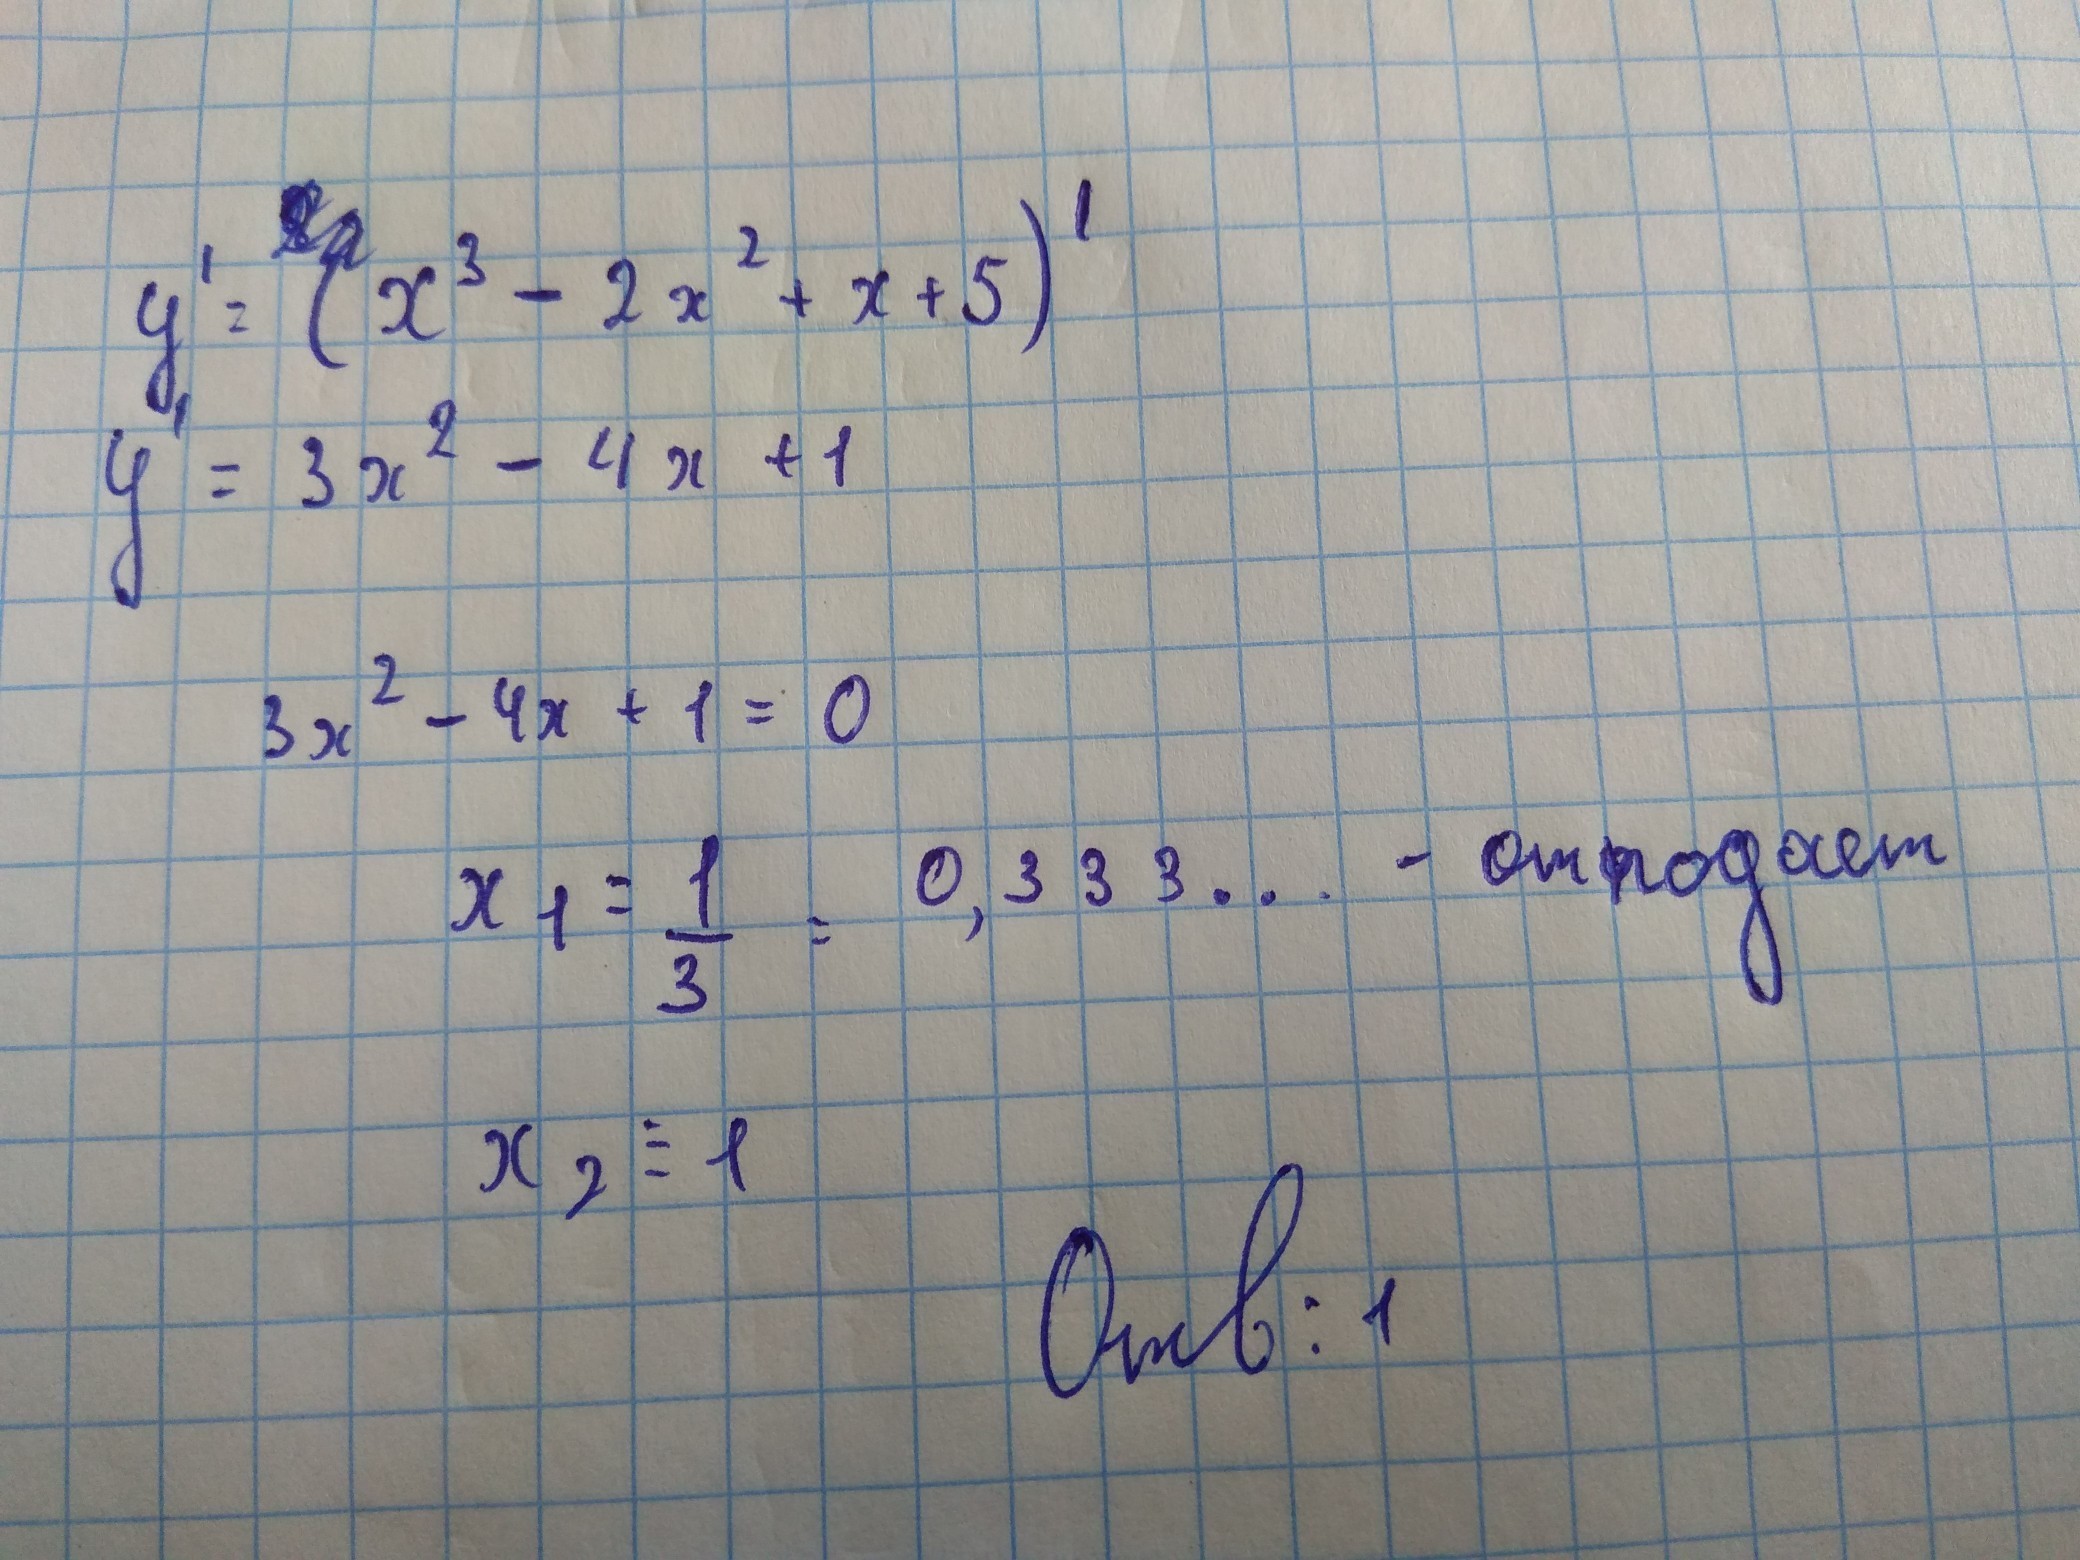 y' = (x³ - 2x² + x + 5)'
y' = 3x² - 4x + 1
3x² - 4x + 1 = 0
x₁ = 1/3 = 0,333... - отподает
x₂ = 1
Отв: 1